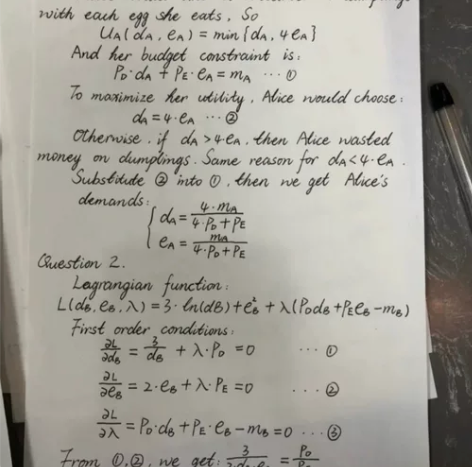 with each egg she eats. So
U_A(d_A, e_A) = min{d_A, 4e_A}
And her budget constraint is:
P_D·d_A + P_E·e_A = m_A ··· ①
To maximize her utility, Alice would choose:
d_A = 4·e_A ··· ②
Otherwise, if d_A > 4·e_A, then Alice wasted
money on dumplings. Same reason for d_A < 4·e_A.
Substitute ② into ①, then we get Alice's
demands:
{ d_A = 4·m_A / (4·P_D + P_E)
e_A = m_A / (4·P_D + P_E)
Question 2.
Lagrangian function:
L(d_B, e_B, λ) = 3·ln(dB) + e_B² + λ(P_D d_B + P_E e_B − m_B)
First order conditions:
∂L/∂d_B = 3/d_B + λ·P_D = 0 ··· ①
∂L/∂e_B = 2·e_B + λ·P_E = 0 ··· ②
∂L/∂λ = P_D·d_B + P_E·e_B − m_B = 0 ··· ③
From ①, ②, we get: 3/ = P_D/